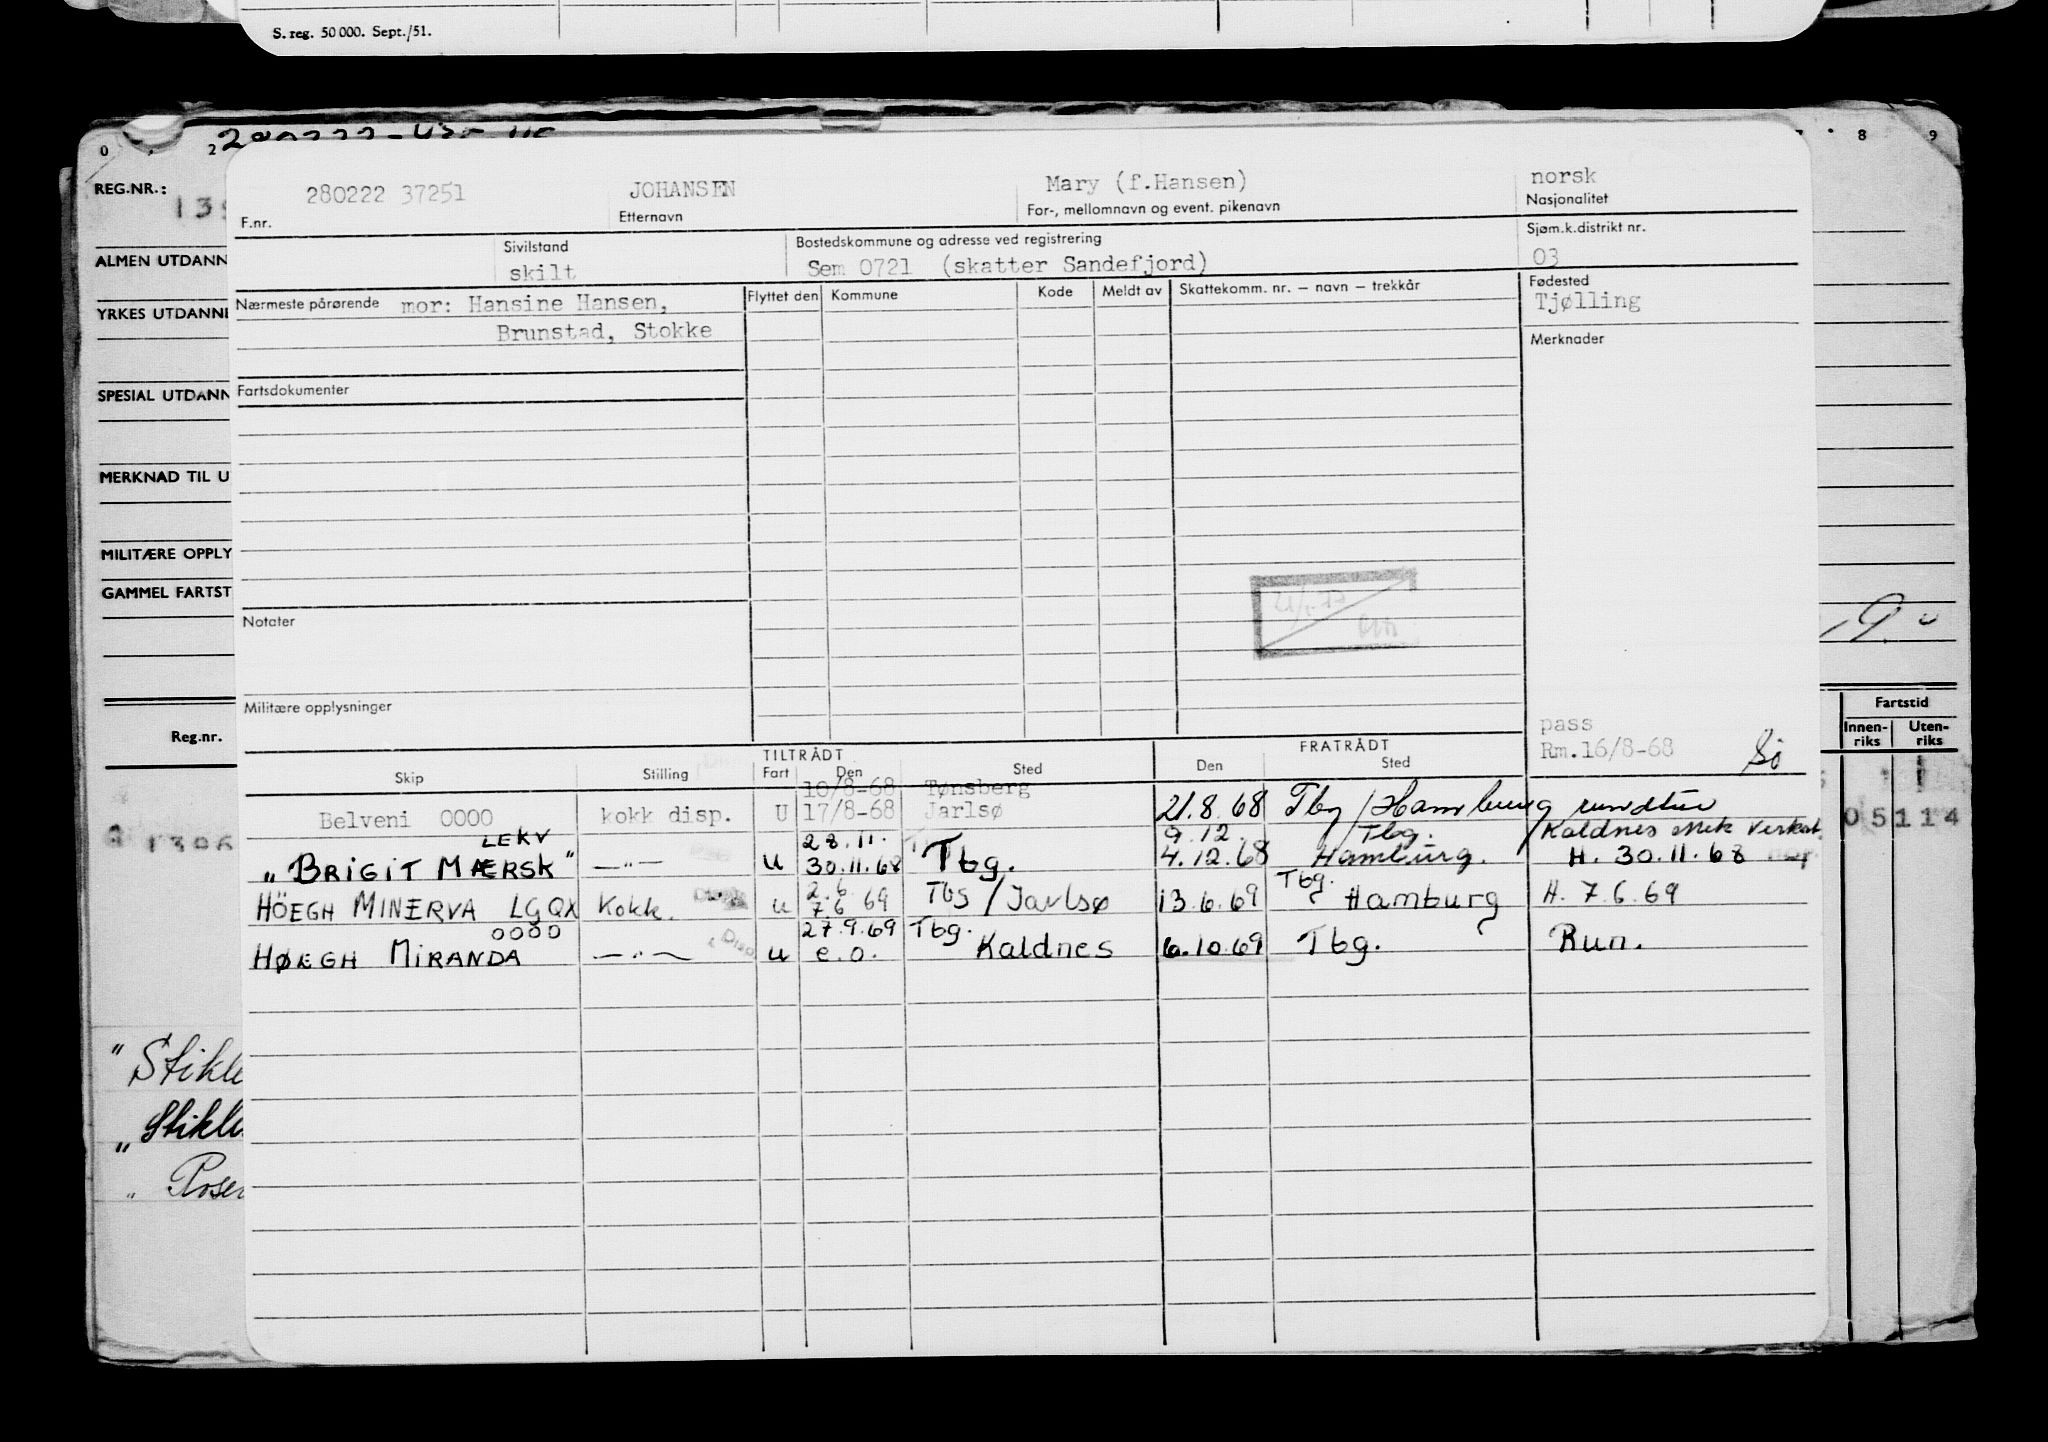 S. reg. 50 000. Sept./51.
0 2 8 9
REG.NR.:
280222 37251 JOHANSEN Mary (f.Hansen) norsk
F.nr. Etternavn For-, mellomnavn og event. pikenavn Nasjonalitet
ALMEN UTDANN
Sivilstand Bostedskommune og adresse ved registrering Sjøm.k.distrikt nr.
skilt Sem 0721 (skatter Sandefjord) 03
Nærmeste pårørende mor: Hansine Hansen, Flyttet den Kommune Kode Meldt av Skattekomm. nr. — navn — trekkår Fødested
Brunstad, Stokke Tjølling
YRKES UTDANNE
Merknader
SPESIAL UTDANN
Fartsdokumenter
MERKNAD TIL U
MILITÆRE OPPLY
GAMMEL FARTST
Notater
Militære opplysninger
pass
Rm.16/8-68 Sö
Reg.nr. Fartstid
Innen-riks Uten-riks
TILTRÅDT FRATRÅDT
Skip Stilling Fart Den Sted Den Sted
10/8-68 Tønsberg
Belveni 0000 kokk disp. U 17/8-68 Jarlsø 21.8.68 Tbg / Hamburg rundtur 05114
LEKV 28.11. 9.12. Tbg. Kaldnes Mek Verkst.
„ BRIGIT MÆRSK" —„— u 30.11.68 Tbg. 4.12.68 Hamburg. H. 30.11.68
2.6. Tbg.
HÖEGH MINERVA LGQX Kokk. u 7.6 69 Tbg / Jarlsø 13.6.69 Hamburg H. 7.6.69
0000 27.9.69 Tbg.
HØEGH MIRANDA —„— u e.o. Kaldnes 6.10.69 Tbg. Run.
" Stikle
„ Stikle
„ Rose